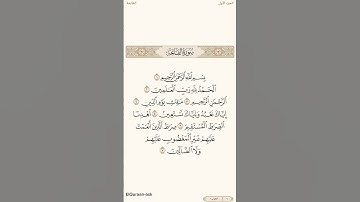 الجزء الأول الفاتحة
سورة الفاتحة
بِسْمِ ٱللَّهِ ٱلرَّحْمَٰنِ ٱلرَّحِيمِ ١
ٱلْحَمْدُ لِلَّهِ رَبِّ ٱلْعَٰلَمِينَ ٢
ٱلرَّحْمَٰنِ ٱلرَّحِيمِ ٣ مَٰلِكِ يَوْمِ ٱلدِّينِ ٤
إِيَّاكَ نَعْبُدُ وَإِيَّاكَ نَسْتَعِينُ ٥ ٱهْدِنَا
ٱلصِّرَٰطَ ٱلْمُسْتَقِيمَ ٦ صِرَٰطَ ٱلَّذِينَ أَنْعَمْتَ
عَلَيْهِمْ غَيْرِ ٱلْمَغْضُوبِ عَلَيْهِمْ
وَلَا ٱلضَّآلِّينَ ٧